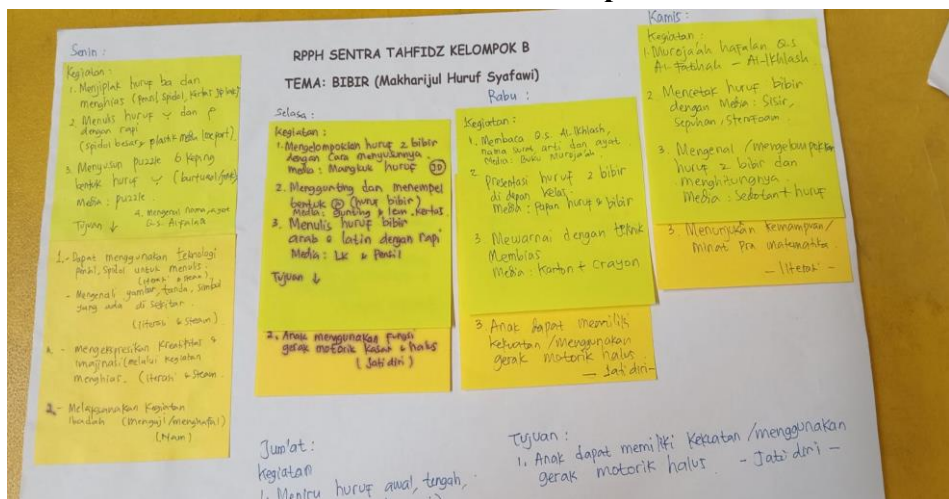 RPPH SENTRA TAHFIDZ KELOMPOK B
TEMA: BIBIR (Makharijul Huruf Syafawi)
Senin :
Kegiatan :
1. Menjiplak huruf ba dan
menghias (pensil, spidol, kertas
2. Menulis huruf ب dan م
dengan rapi
(spidol besar, plastik
3. Menyusun puzzle 6 keping
bentuk huruf ب
Media : puzzle.
4. mengenal nama, ayat
Q.S. Al-falaq
Tujuan ↓
1. - Dapat menggunakan teknologi
pensil, spidol untuk menulis.
(literasi & steam)
- Mengenali gambar, tanda, simbol
yang ada di sekitar.
(literasi & steam)
- Mengekspresikan kreatifitas &
imajinasi (melalui kegiatan
menghias. (literasi & steam
2. - Melaksanakan kegiatan
Ibadah (mengaji/menghafal)
(Nam)
Selasa :
Kegiatan :
1. Mengelompokkan huruf 2 bibir
dengan cara menyusunnya.
media : Mangkuk huruf 3D
2. Menggunting dan menempel
bentuk (huruf bibir)
Media : gunting & lem, kertas.
3. Menulis huruf bibir
arab & latin dengan rapi
Media : LK & Pensil
Tujuan ↓
2. Anak menggunakan fungsi
gerak motorik kasar & halus
(Jati diri)
Rabu :
Kegiatan :
1. Membaca Q.S. Al-Ikhlash,
nama surat, arti dan ayat.
Media : Buku Muroja'ah.
2. Presentasi huruf 2 bibir
di depan kelas.
Media : Papan huruf & bibir
3. Mewarnai dengan teknik
Membias
Media : Karton + Crayon
3. Anak dapat memiliki
kekuatan /menggunakan
gerak motorik halus.
- Jati diri -
Kamis :
Kegiatan :
1. Muroja'ah hafalan Q.S
Al-Fatihah - Al-Ikhlash.
2. Mencetak huruf bibir
dengan Media : Sisir,
3. Mengenal /mengelompokkan
huruf 2 bibir dan
menghitungnya.
Media : Sedotan + huruf
3. Menunjukan kemampuan/
minat Pra matematika.
- literasi -
Jum'at :
Kegiatan
1. Meniru huruf awal, tengah,
Tujuan :
1. Anak dapat memiliki kekuatan /menggunakan
gerak motorik halus. - Jati diri -